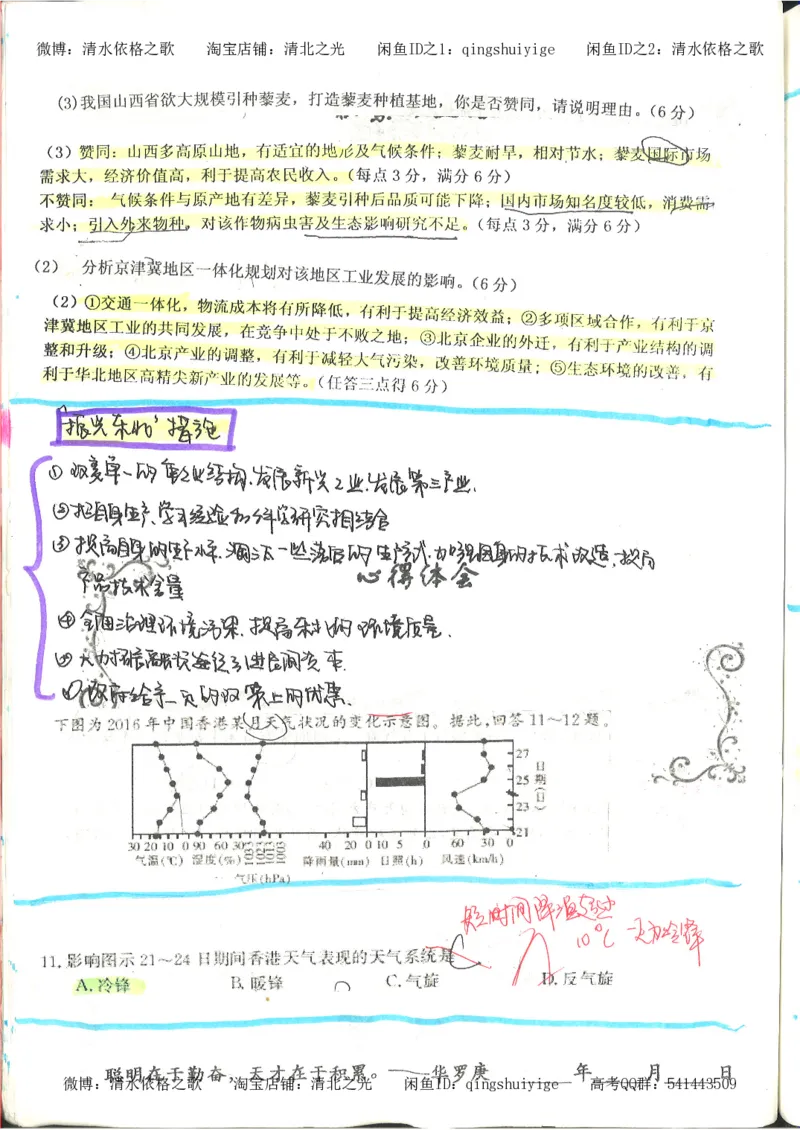 微博：清水依格之歌 淘宝店铺：清北之光 闲鱼ID之1：qingshuiyige 闲鱼ID之2：清水依格之歌
(3)我国山西省欲大规模引种藜麦，打造藜麦种植基地，你是否赞同，请说明理由。（6分）
（3）赞同：山西多高原山地，有适宜的地形及气候条件；藜麦耐旱，相对节水；藜麦国际市场
需求大，经济价值高，利于提高农民收入。（每点3分，满分6分）
不赞同： 气候条件与原产地有差异，藜麦引种后品质可能下降；国内市场知名度较低，消费需
求小；引入外来物种，对该作物病虫害及生态影响研究不足。（每点3分，满分6分）
（2） 分析京津冀地区一体化规划对该地区工业发展的影响。（6分）
（2）①交通一体化，物流成本将有所降低，有利于提高经济效益；②多项区域合作，有利于京
津冀地区工业的共同发展，在竞争中处于不败之地；③北京企业的外迁，有利于产业结构的调
整和升级；④北京产业的调整，有利于减轻大气污染，改善环境质量；⑤生态环境的改善，有
利于华北地区高精尖新产业的发展等。（任答三点得6分）
“振兴东北”措施
①改变单一的重工业结构、发展新兴工业、发展第三产业.
②把自身生产、学习经验和科学研究相结合
③提高自身的生产水平、淘汰一些落后的生产方式、加强自身的技术改造、提高
产品技术含量
心得体会
④全面治理环境污染、提高东北的环境质量.
⑥政府给予一定的政策上的优惠.
下图为2016年中国香港某月天气状况的变化示意图。据此，回答11～12题。
27
25
23
21
日期(日)
30 20 10 0 90 60 30 1033 1023 1013 1003 40 20 0 10 5 0 60 30 0
气温(℃) 湿度(%) 降雨量(mm) 日照(h) 风速(km/h)
气压(hPa)
短时间降温超过
10℃ 一定为冷锋
11.影响图示21～24日期间香港天气表现的天气系统是
A.冷锋 B.暖锋 C.气旋 D.反气旋
聪明在于勤奋，天才在于积累。——华罗庚 年 月 日
微博：清水依格之歌 淘宝店铺：清北之光 闲鱼ID：qingshuiyige 高考QQ群：541443509